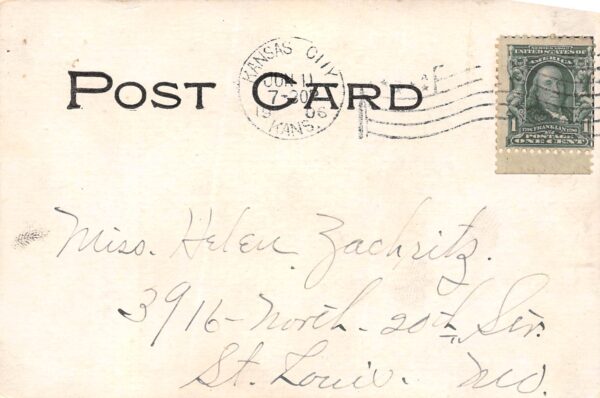 KANSAS CITY
JUN 11
7-30P
1906
KANS.
POST CARD
SERIES 1902
UNITED STATES OF
AMERICA
1706 FRANKLIN 1790
POSTAGE
1 ONE CENT
Miss. Helen. Zachritz.
3916-North-20th Str.
St. Louis. Mo.